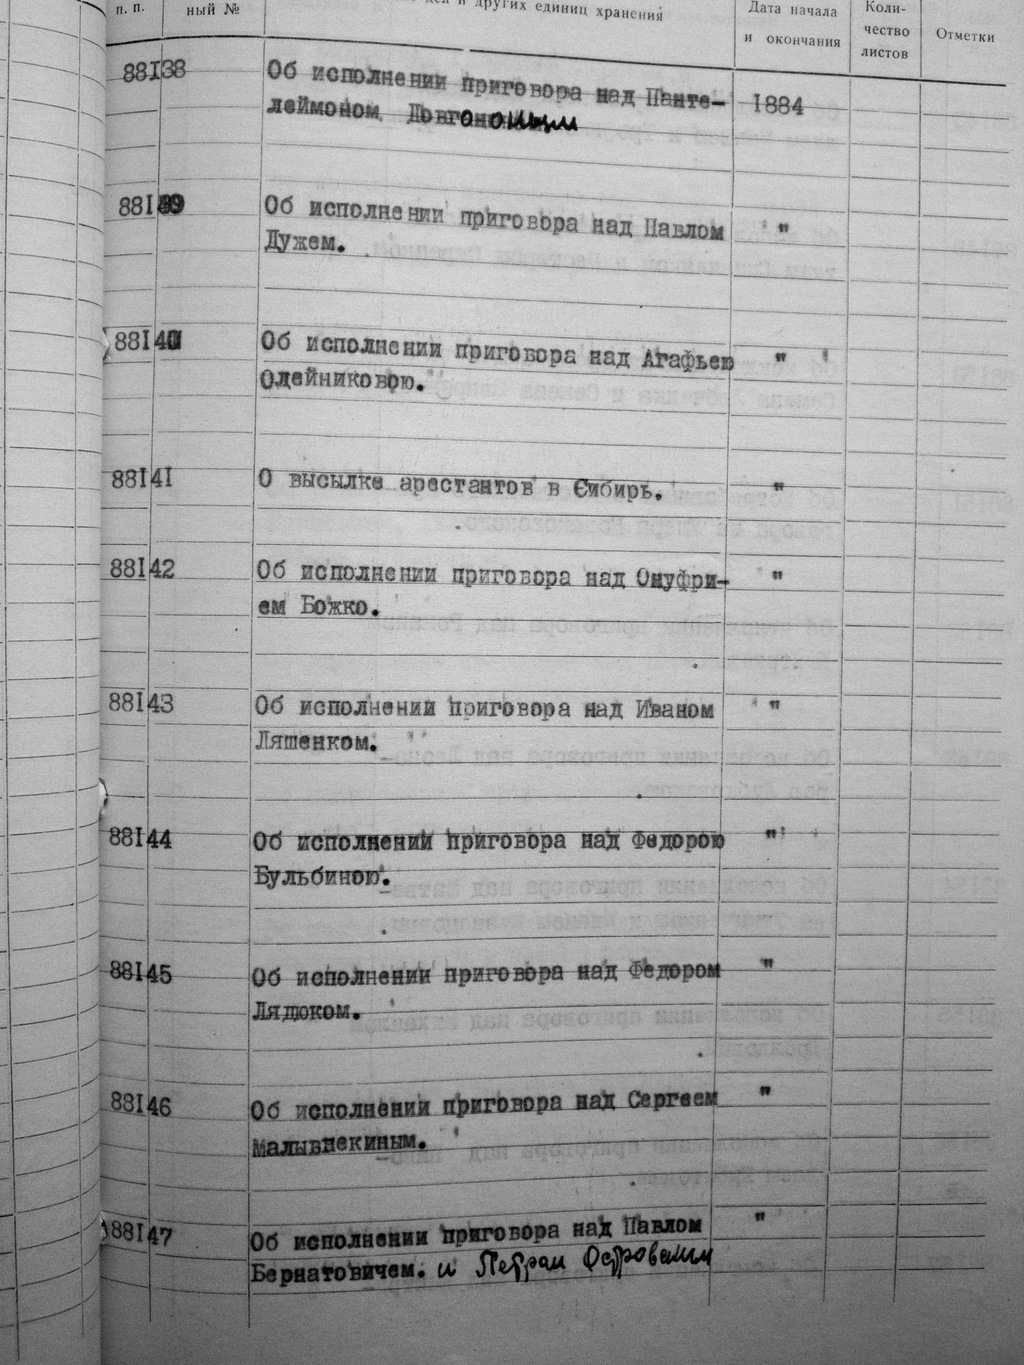 п. п.
ный №
дел и других единиц хранения
Дата начала
и окончания
Коли-
чество
листов
Отметки
88138 Об исполнении приговора над Панте- 1884
леймоном
88139 Об исполнении приговора над Павлом "
Дужем.
88140 Об исполнении приговора над Агафьею "
Олейниковою.
88141 О высылке арестантов в Сибирь. "
88142 Об исполнении приговора над Онуфри- "
ем Божко.
88143 Об исполнении приговора над Иваном "
Ляшенком.
88144 Об исполнении приговора над Федорою "
Бульбиною.
88145 Об исполнении приговора над Федором "
Лядюком.
88146 Об исполнении приговора над Сергеем "
88147 Об исполнении приговора над Павлом "
Бернатовичем. и Петром